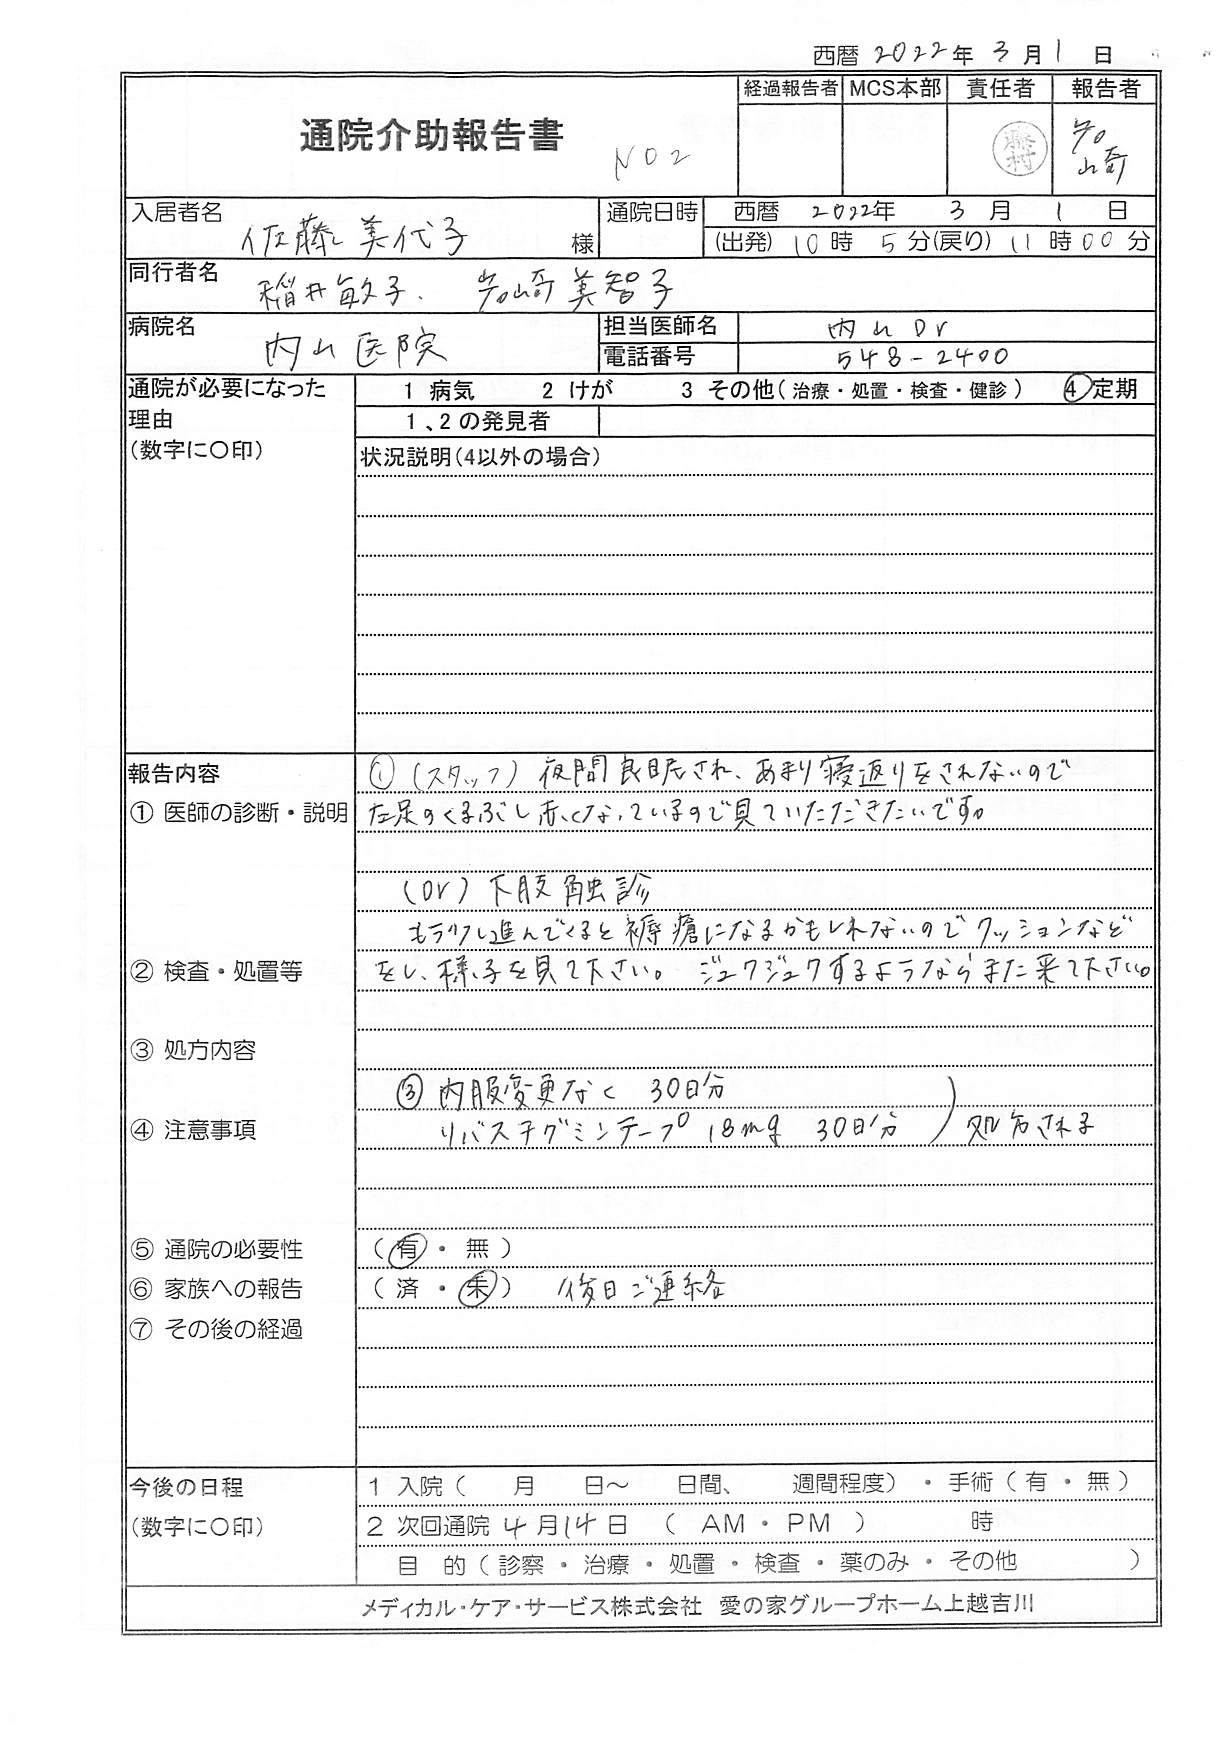 西暦 2022年 3月 1日
通院介助報告書 NO2
経過報告者 MCS本部 責任者 報告者
藤村 岩崎
入居者名 佐藤美代子 様
通院日時 西暦 2022年 3月 1日
(出発) 10時 5分(戻り) 11時00分
同行者名 稲井敏子、岩崎美智子
病院名 内山医院
担当医師名 内山Dr
電話番号 548-2400
通院が必要になった理由
(数字に〇印)
1 病気 2 けが 3 その他(治療・処置・検査・健診) ④定期
1、2の発見者
状況説明(4以外の場合)
報告内容
① (スタッフ) 夜間良眠され、あまり寝返りをされないので
① 医師の診断・説明
左足のくるぶし赤くなっているので見ていただきたいです。
(Dr) 下肢触診
もう少し進んでくると褥瘡になるかもしれないのでクッションなど
② 検査・処置等
をし、様子を見て下さい。ジュクジュクするようならまた来て下さい。
③ 処方内容
③ 内服変更なく 30日分
④ 注意事項
リバスチグミンテープ 18mg 30日分 ) 処方される
⑤ 通院の必要性 (有・無)
⑥ 家族への報告 (済・未) 後日ご連絡
⑦ その後の経過
今後の日程
(数字に〇印)
1 入院( 月 日〜 日間、 週間程度)・手術(有・無)
2 次回通院 4月14日 ( AM・PM ) 時
目 的(診察・治療・処置・検査・薬のみ・その他 )
メディカル・ケア・サービス株式会社 愛の家グループホーム上越吉川